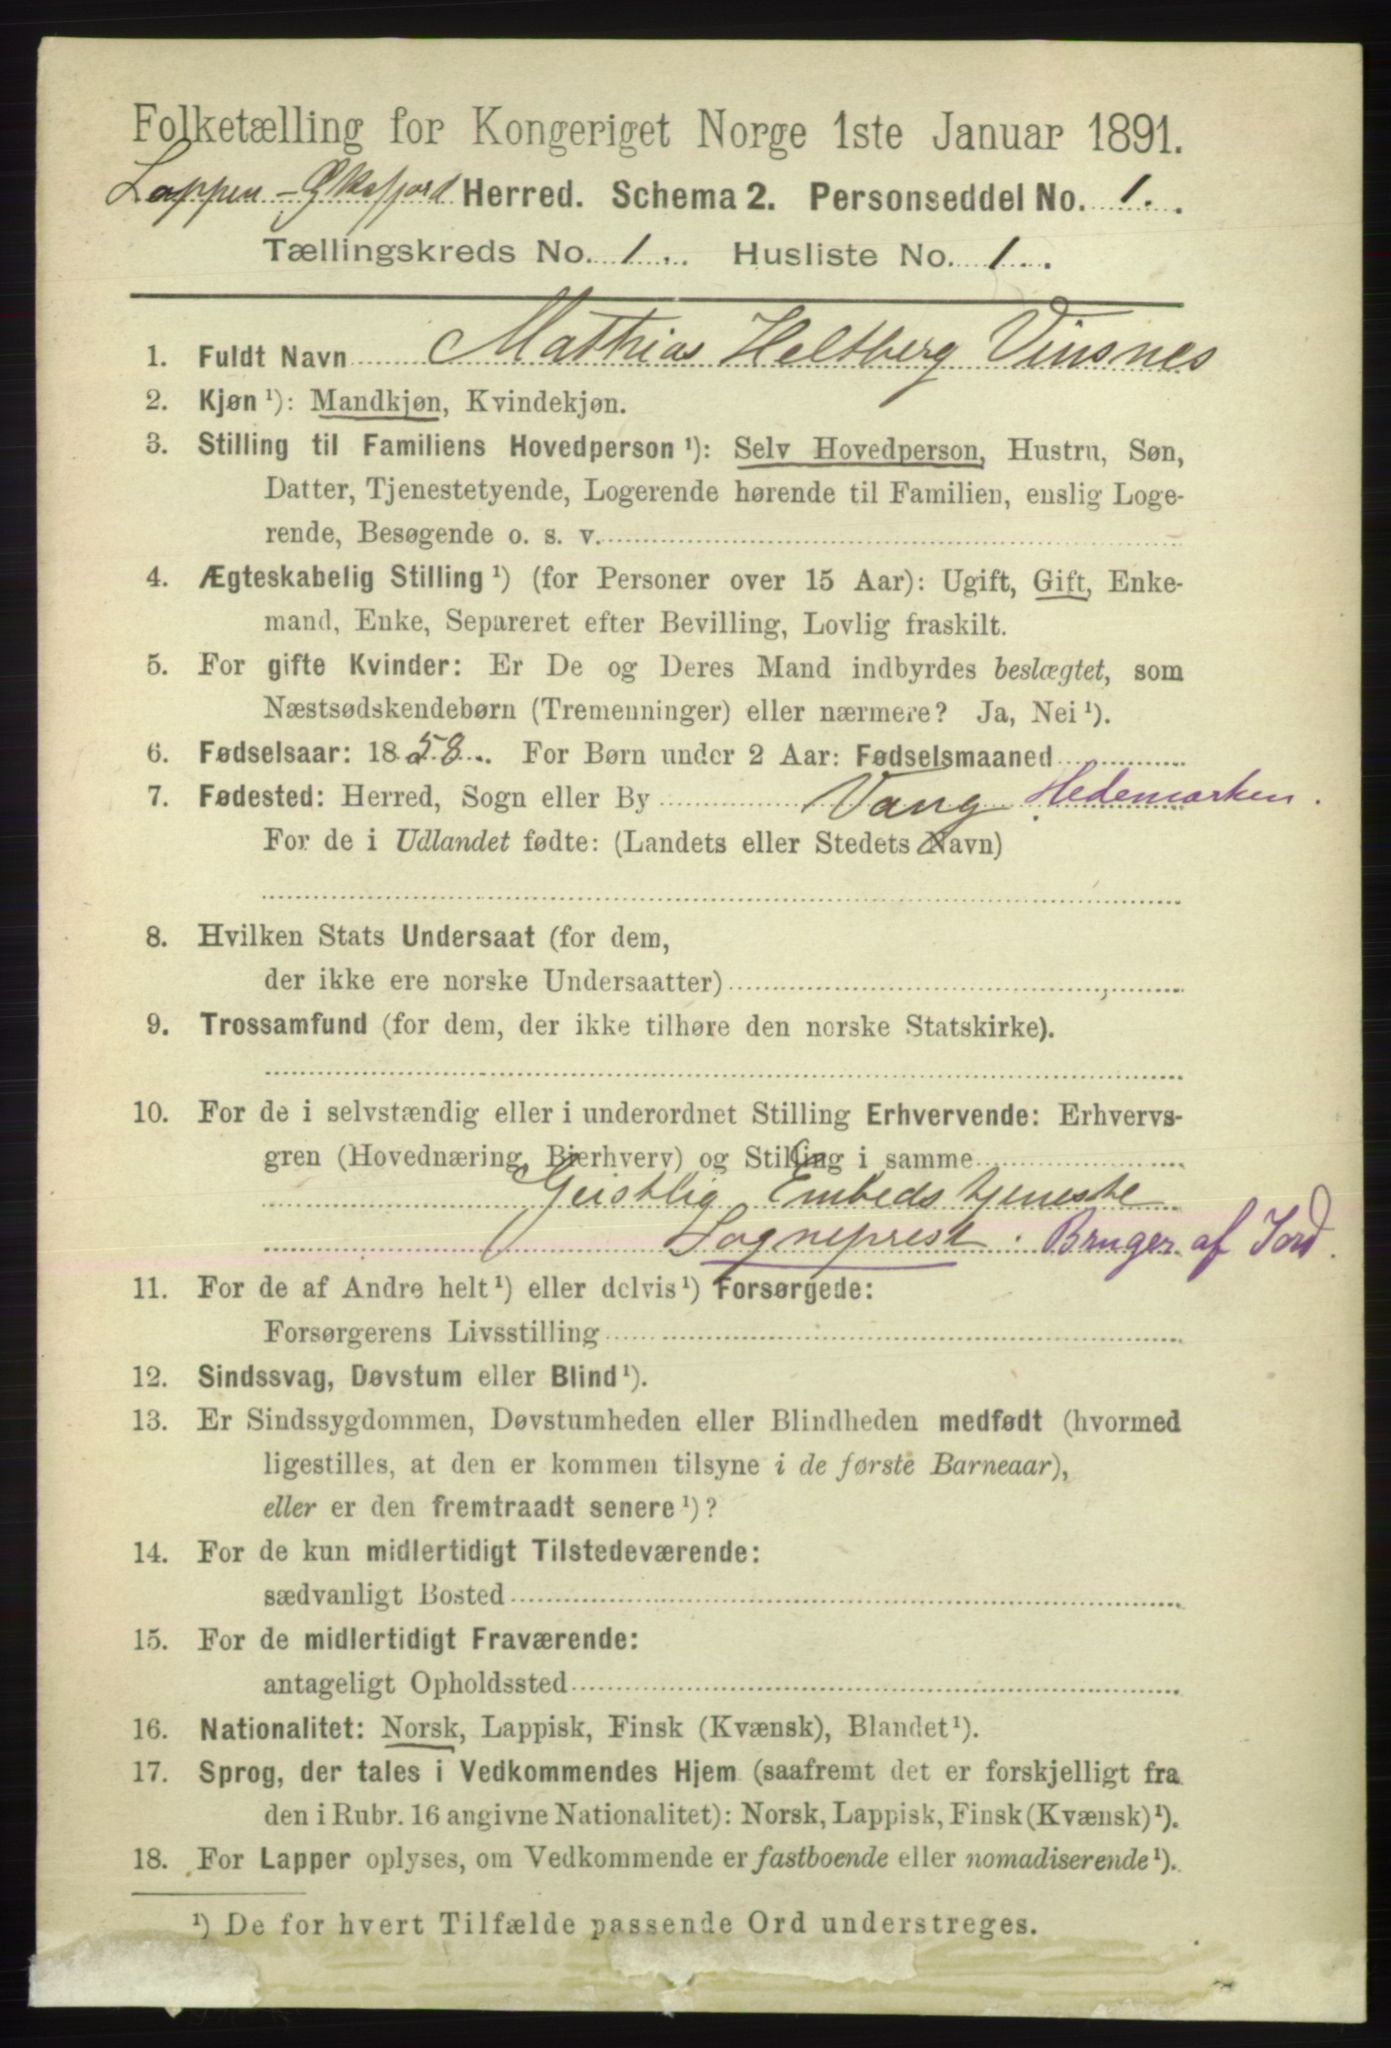 Folketælling for Kongeriget Norge 1ste Januar 1891.
Loppen - Øksfjord Herred. Schema 2. Personseddel No. 1.
Tællingskreds No. 1. Husliste No. 1.
1. Fuldt Navn Mathias Heltberg Vinsnes
2. Kjøn ¹): Mandkjøn, Kvindekjøn.
3. Stilling til Familiens Hovedperson ¹): Selv Hovedperson, Hustru, Søn,
Datter, Tjenestetyende, Logerende hørende til Familien, enslig Loge-
rende, Besøgende o. s. v.
4. Ægteskabelig Stilling ¹) (for Personer over 15 Aar): Ugift, Gift, Enke-
mand, Enke, Separeret efter Bevilling, Lovlig fraskilt.
5. For gifte Kvinder: Er De og Deres Mand indbyrdes beslægtet, som
Næstsødskendebørn (Tremenninger) eller nærmere? Ja, Nei ¹).
6. Fødselsaar: 1858. For Børn under 2 Aar: Fødselsmaaned
7. Fødested: Herred, Sogn eller By Vang Hedemarken.
For de i Udlandet fødte: (Landets eller Stedets Navn)
8. Hvilken Stats Undersaat (for dem,
der ikke ere norske Undersaatter)
9. Trossamfund (for dem, der ikke tilhøre den norske Statskirke).
10. For de i selvstændig eller i underordnet Stilling Erhvervende: Erhvervs-
gren (Hovednæring, Bierhverv) og Stilling i samme
Geistlig Embedstjeneste
Sogneprest. Bruger af Jord.
11. For de af Andre helt ¹) eller delvis ¹) Forsørgede:
Forsørgerens Livsstilling
12. Sindssvag, Døvstum eller Blind ¹).
13. Er Sindssygdommen, Døvstumheden eller Blindheden medfødt (hvormed
ligestilles, at den er kommen tilsyne i de første Barneaar),
eller er den fremtraadt senere ¹)?
14. For de kun midlertidigt Tilstedeværende:
sædvanligt Bosted
15. For de midlertidigt Fraværende:
antageligt Opholdssted
16. Nationalitet: Norsk, Lappisk, Finsk (Kvænsk), Blandet ¹).
17. Sprog, der tales i Vedkommendes Hjem (saafremt det er forskjelligt fra
den i Rubr. 16 angivne Nationalitet): Norsk, Lappisk, Finsk (Kvænsk) ¹).
18. For Lapper oplyses, om Vedkommende er fastboende eller nomadiserende ¹).
¹) De for hvert Tilfælde passende Ord understreges.